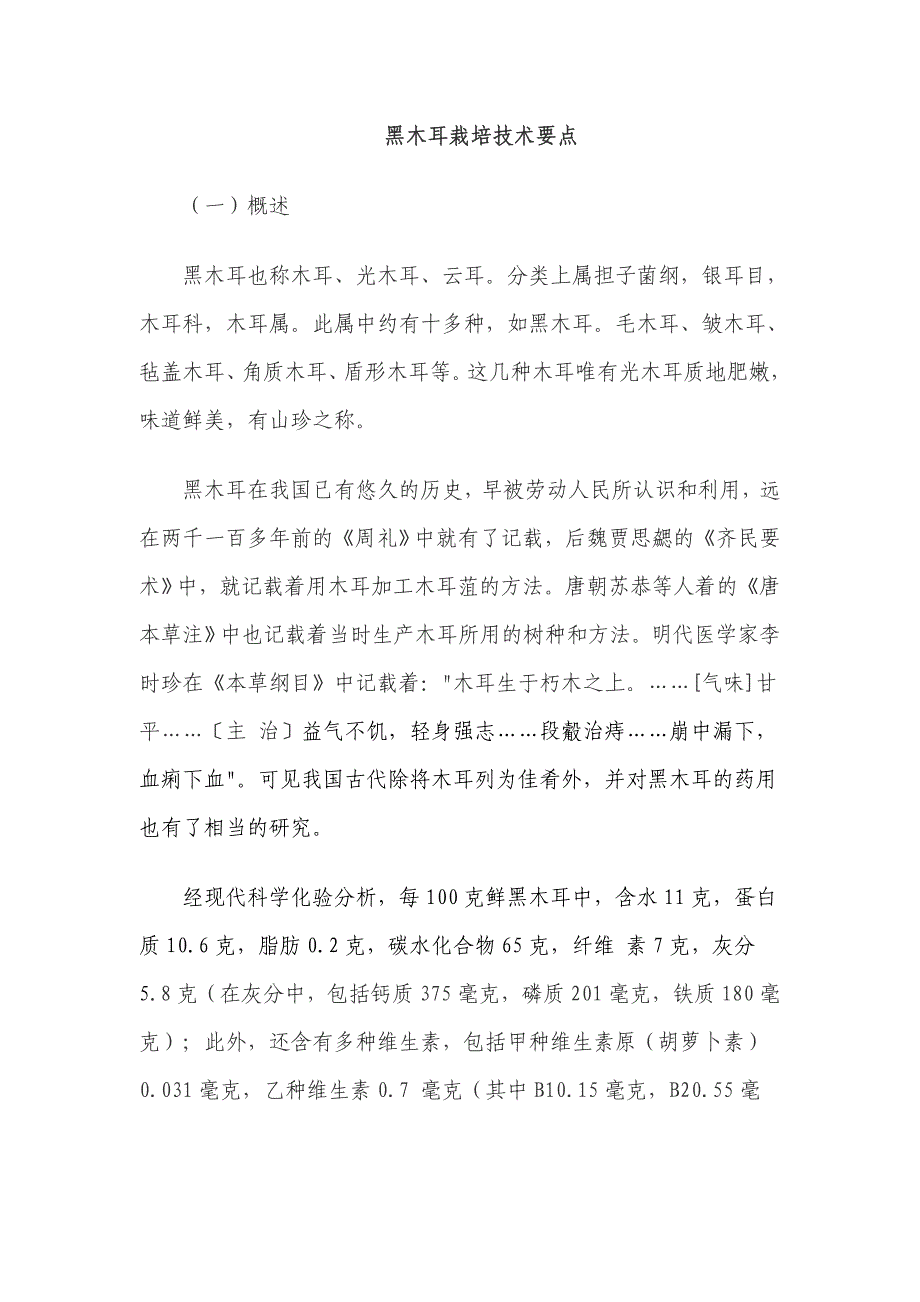 黑木耳栽培技术要点
（一）概述
黑木耳也称木耳、光木耳、云耳。分类上属担子菌纲，银耳目，
木耳科，木耳属。此属中约有十多种，如黑木耳。毛木耳、皱木耳、
毡盖木耳、角质木耳、盾形木耳等。这几种木耳唯有光木耳质地肥嫩，
味道鲜美，有山珍之称。
黑木耳在我国已有悠久的历史，早被劳动人民所认识和利用，远
在两千一百多年前的《周礼》中就有了记载，后魏贾思勰的《齐民要
术》中，就记载着用木耳加工木耳菹的方法。唐朝苏恭等人着的《唐
本草注》中也记载着当时生产木耳所用的树种和方法。明代医学家李
时珍在《本草纲目》中记载着："木耳生于朽木之上。……[气味]甘
平……〔主 治〕益气不饥，轻身强志……段觳治痔……崩中漏下，
血痢下血"。可见我国古代除将木耳列为佳肴外，并对黑木耳的药用
也有了相当的研究。
经现代科学化验分析，每100克鲜黑木耳中，含水11克，蛋白
质10.6克，脂肪0.2克，碳水化合物65克，纤维 素7克，灰分
5.8克（在灰分中，包括钙质375毫克，磷质201毫克，铁质180毫
克）；此外，还含有多种维生素，包括甲种维生素原（胡萝卜素）
0.031毫克，乙种维生素0.7 毫克（其中B10.15毫克，B20.55毫